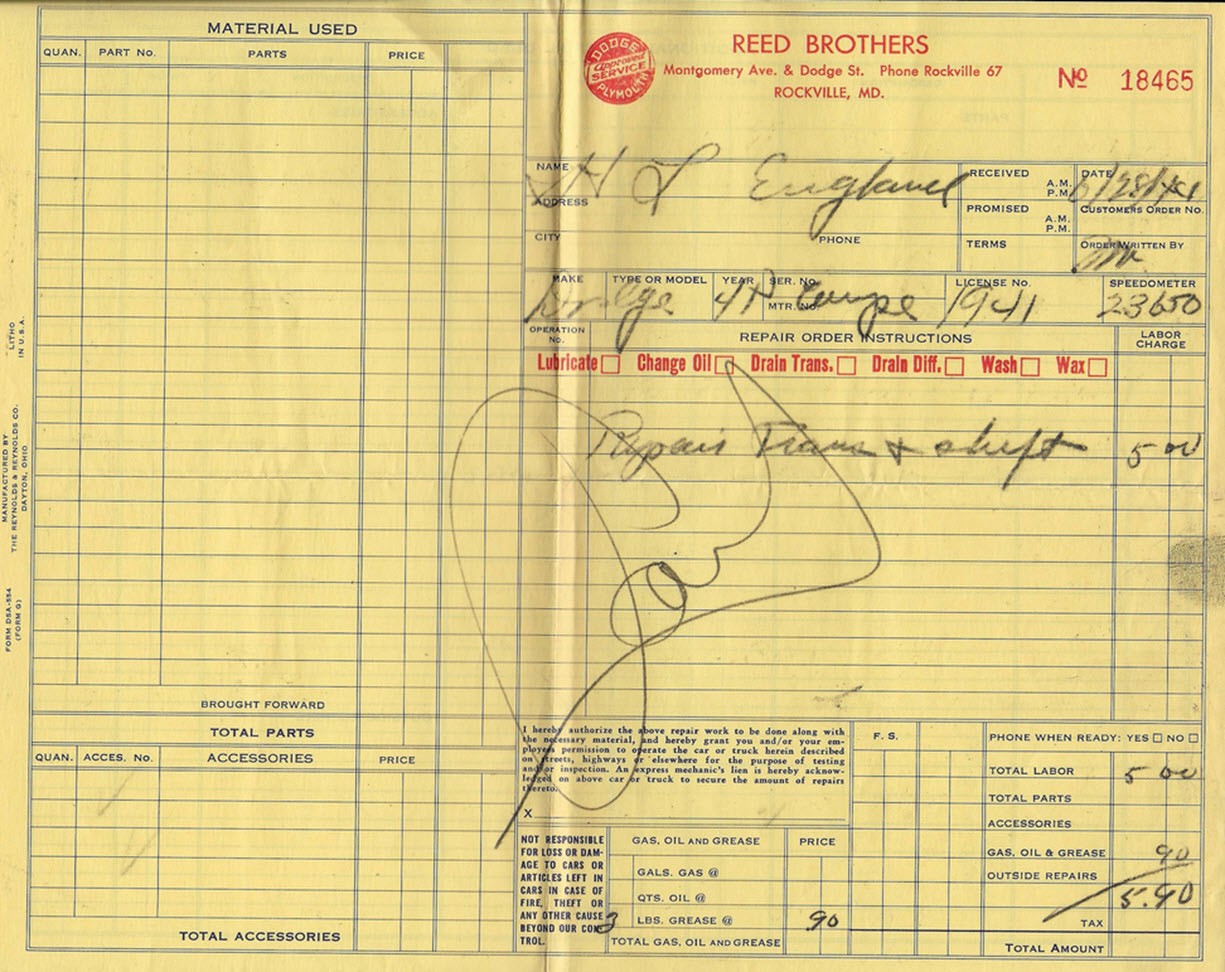 MATERIAL USED
QUAN. PART No. PARTS PRICE
BROUGHT FORWARD
TOTAL PARTS
QUAN. ACCES. No. ACCESSORIES PRICE
TOTAL ACCESSORIES
LITHO
IN U.S.A.
MANUFACTURED BY
THE REYNOLDS & REYNOLDS CO.
DAYTON, OHIO
FORM DSA-554
(FORM G)
DODGE
Approved
SERVICE
PLYMOUTH
REED BROTHERS
Montgomery Ave. & Dodge St. Phone Rockville 67
ROCKVILLE, MD.
No 18465
NAME H L England
RECEIVED A.M. P.M.
DATE 6/28/41
ADDRESS
PROMISED A.M. P.M.
CUSTOMERS ORDER No.
CITY PHONE
TERMS
ORDER WRITTEN BY
MAKE TYPE OR MODEL YEAR SER. No. LICENSE No. SPEEDOMETER
MTR. No.
Dodge 4P Coupe 1941 23650
OPERATION No. REPAIR ORDER INSTRUCTIONS LABOR CHARGE
Lubricate Change Oil Drain Trans. Drain Diff. Wash Wax
Repair Trans + shift 5 00
I hereby authorize the above repair work to be done along with
the necessary material, and hereby grant you and/or your em-
ployees permission to operate the car or truck herein described
on streets, highways or elsewhere for the purpose of testing
and/or inspection. An express mechanic's lien is hereby acknow-
ledged on above car or truck to secure the amount of repairs
thereto.
X
F. S.
PHONE WHEN READY: YES NO
TOTAL LABOR 5 00
TOTAL PARTS
ACCESSORIES
GAS, OIL & GREASE 90
OUTSIDE REPAIRS
5.90
TAX
TOTAL AMOUNT
NOT RESPONSIBLE
FOR LOSS OR DAM-
AGE TO CARS OR
ARTICLES LEFT IN
CARS IN CASE OF
FIRE, THEFT OR
ANY OTHER CAUSE
BEYOND OUR CON-
TROL.
GAS, OIL AND GREASE PRICE
GALS. GAS @
QTS. OIL @
3 LBS. GREASE @ 90
TOTAL GAS, OIL AND GREASE